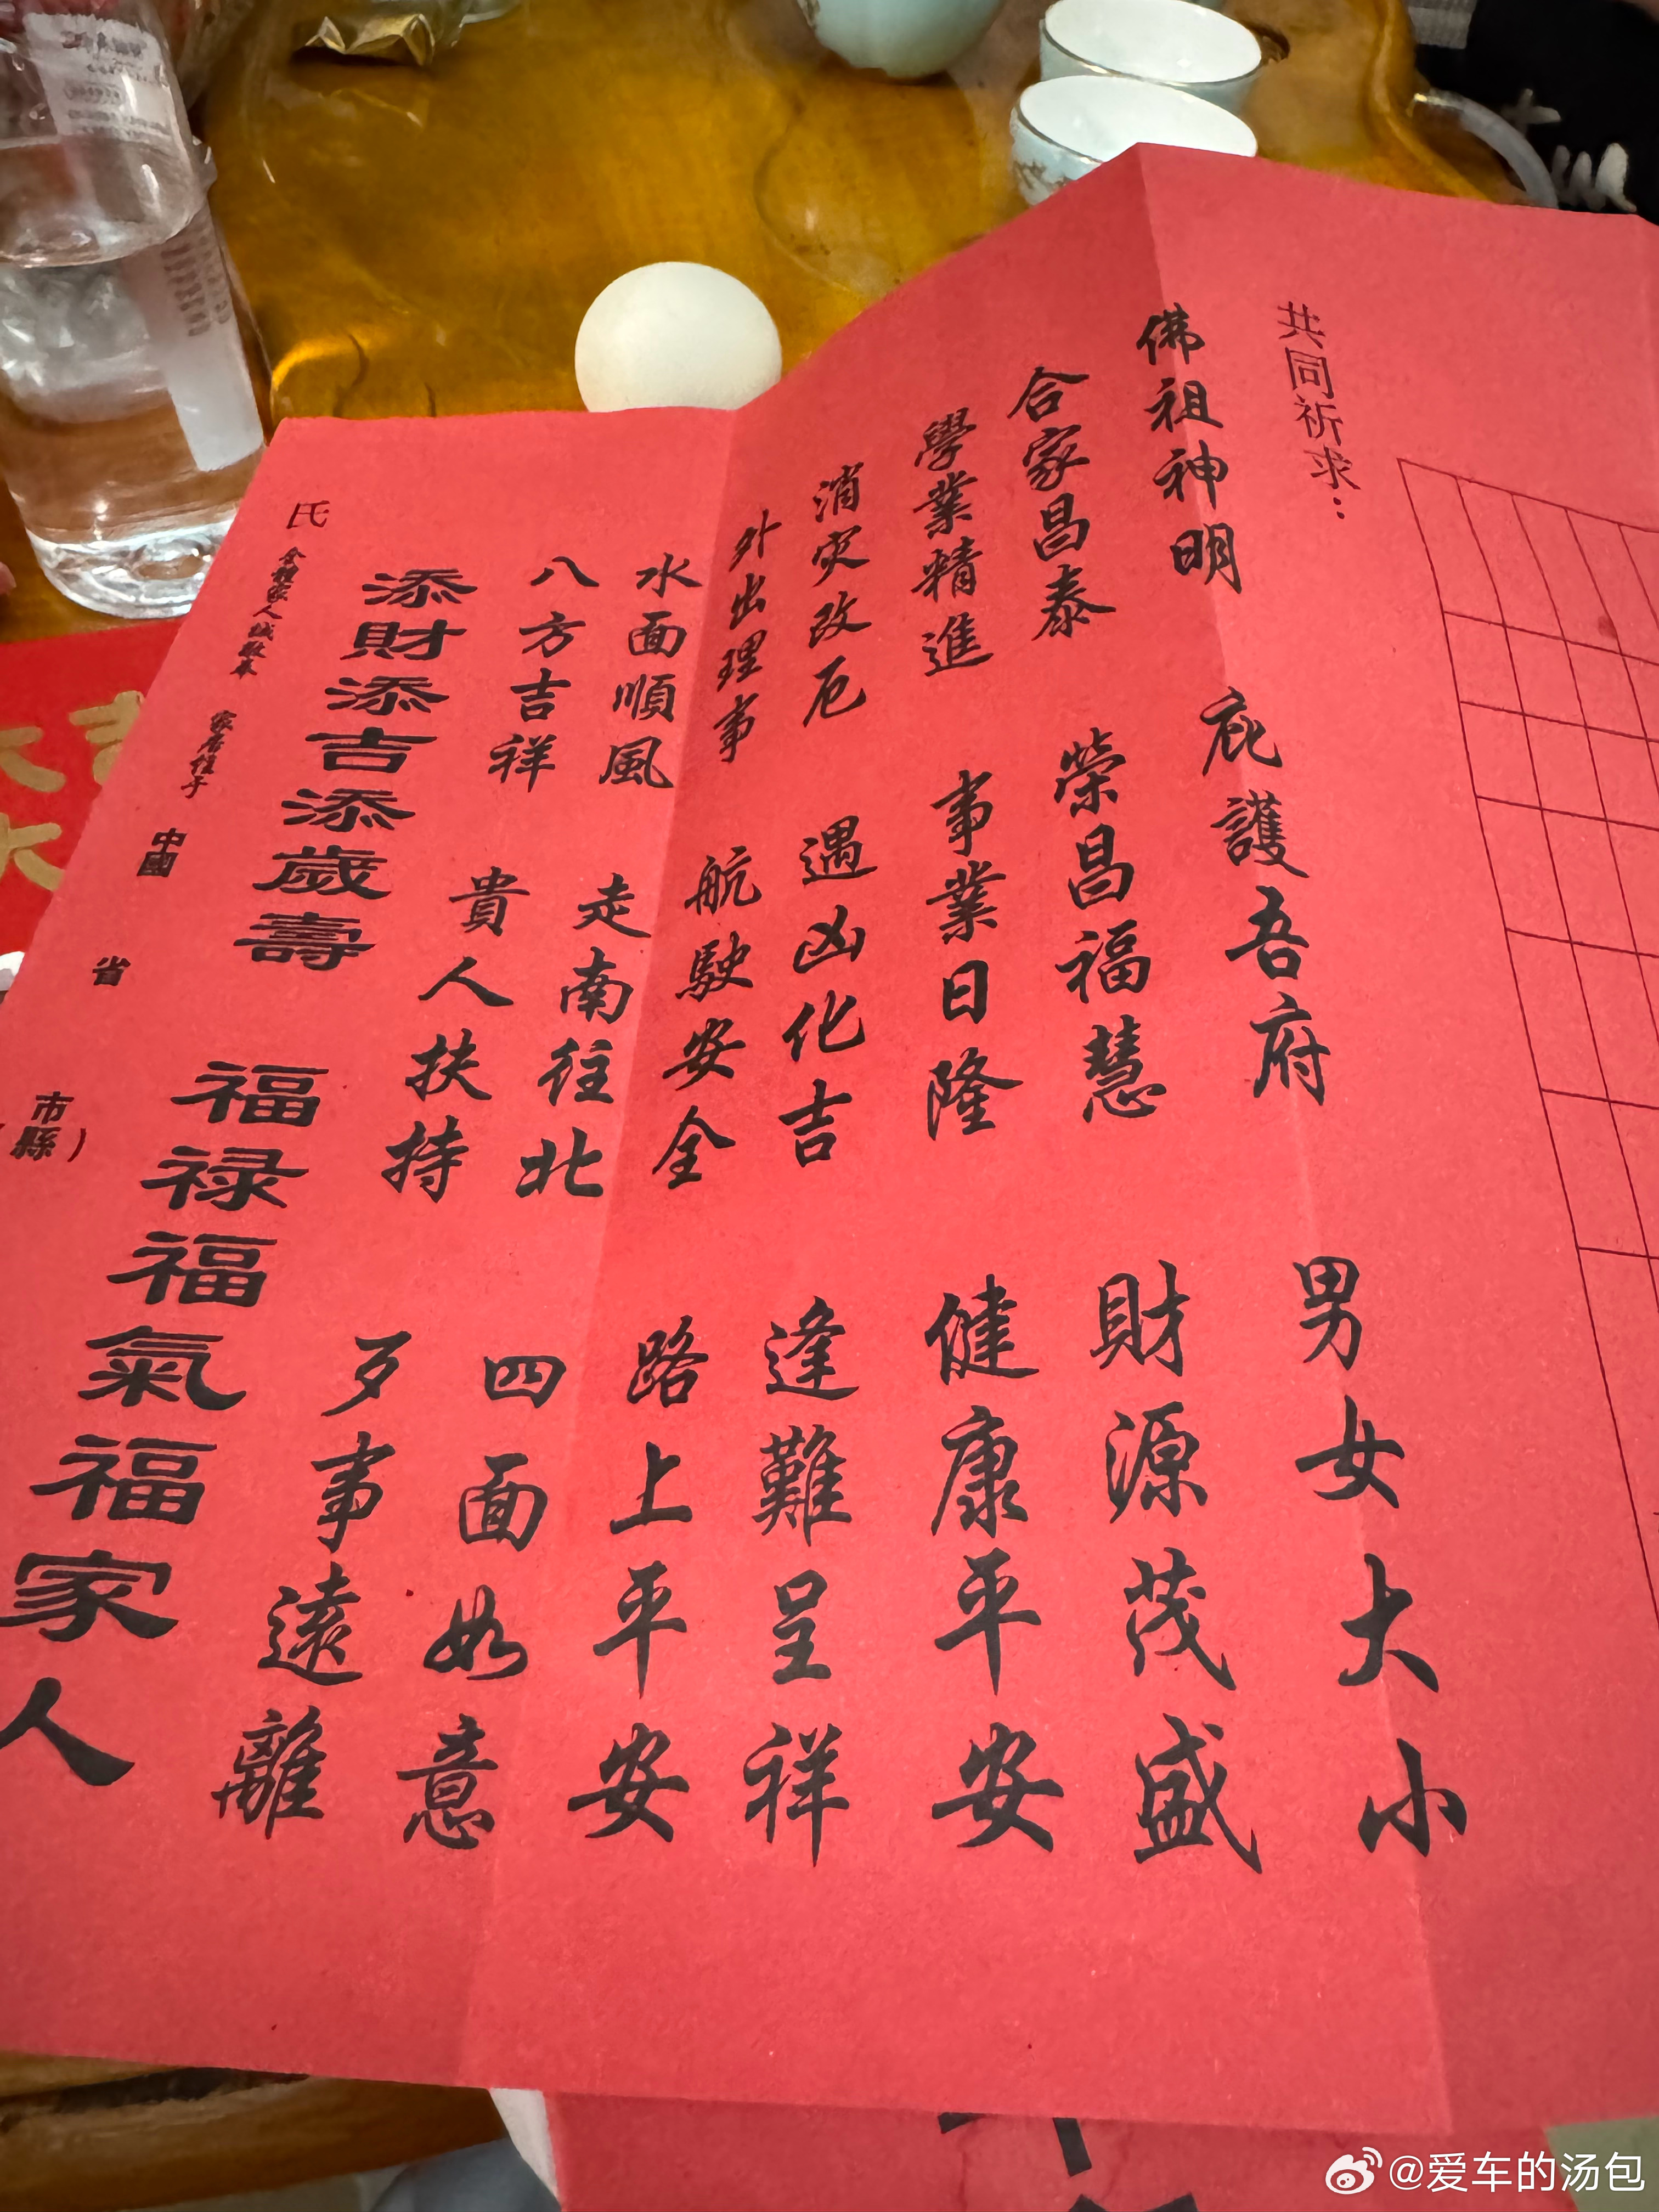 共同祈求：
佛祖神明 庇護吾府 男女大小
合家昌泰 榮昌福慧 財源茂盛
學業精進 事業日隆 健康平安
消災改厄 遇凶化吉 逢難呈祥
外出理事 航駛安全 路上平安
水面順風 走南往北 四面如意
八方吉祥 貴人扶持 歹事遠離
添財添吉添歲壽 福禄福氣福家人
氏 全體家人誠敬奉 家居住于 中國 省 市縣）
@爱车的汤包